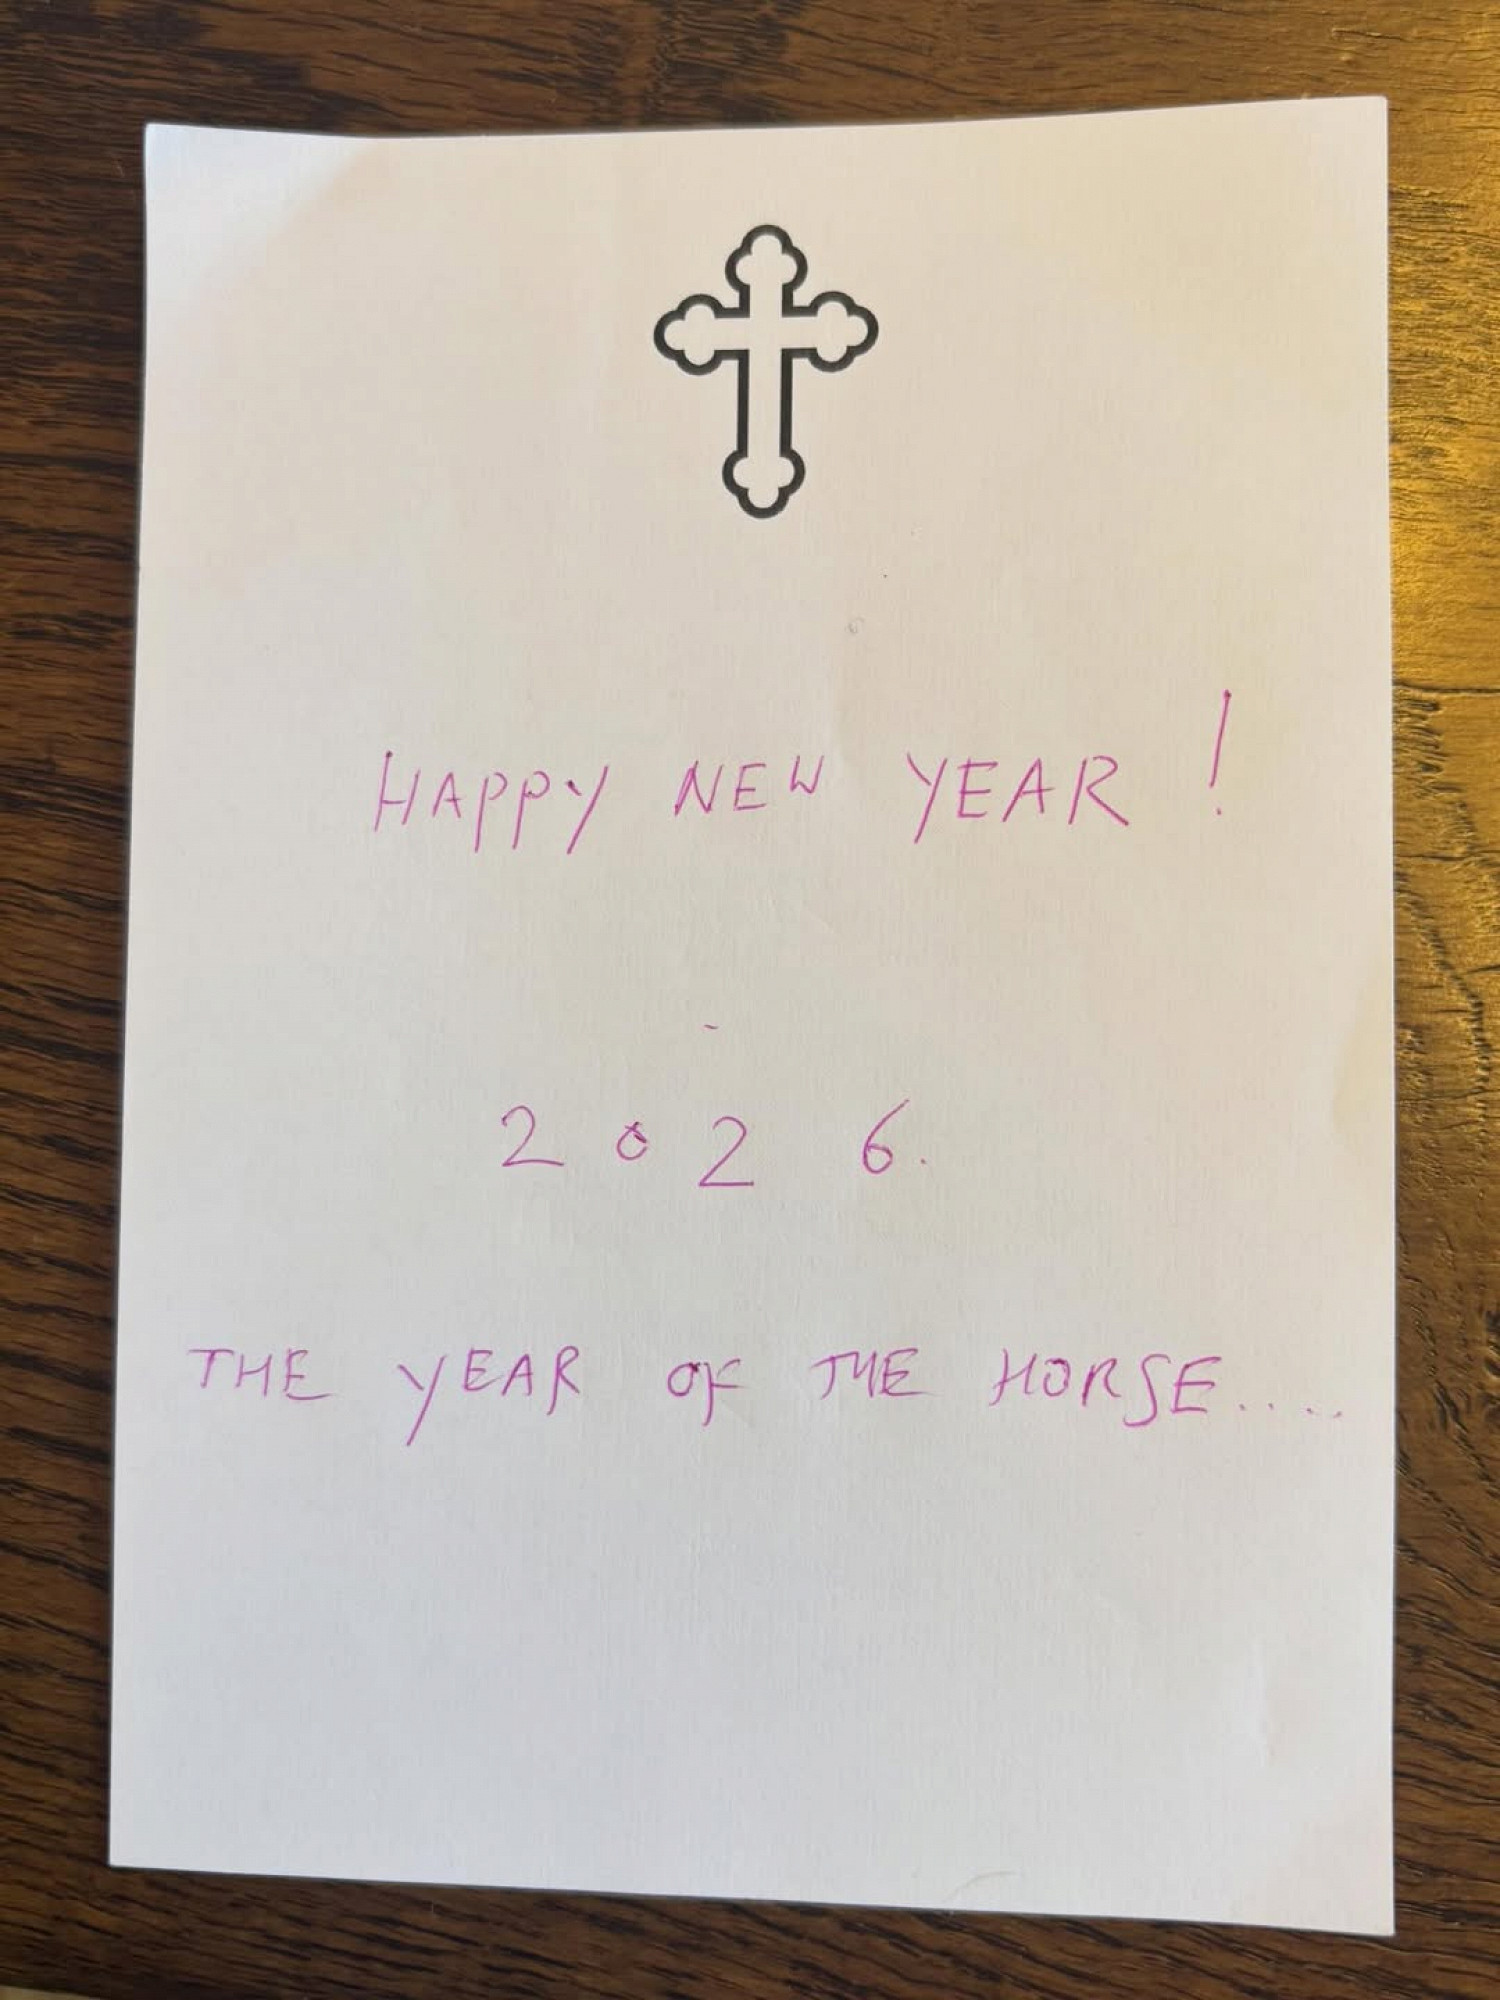 HAPPY NEW YEAR !
2026.
THE YEAR OF THE HORSE....